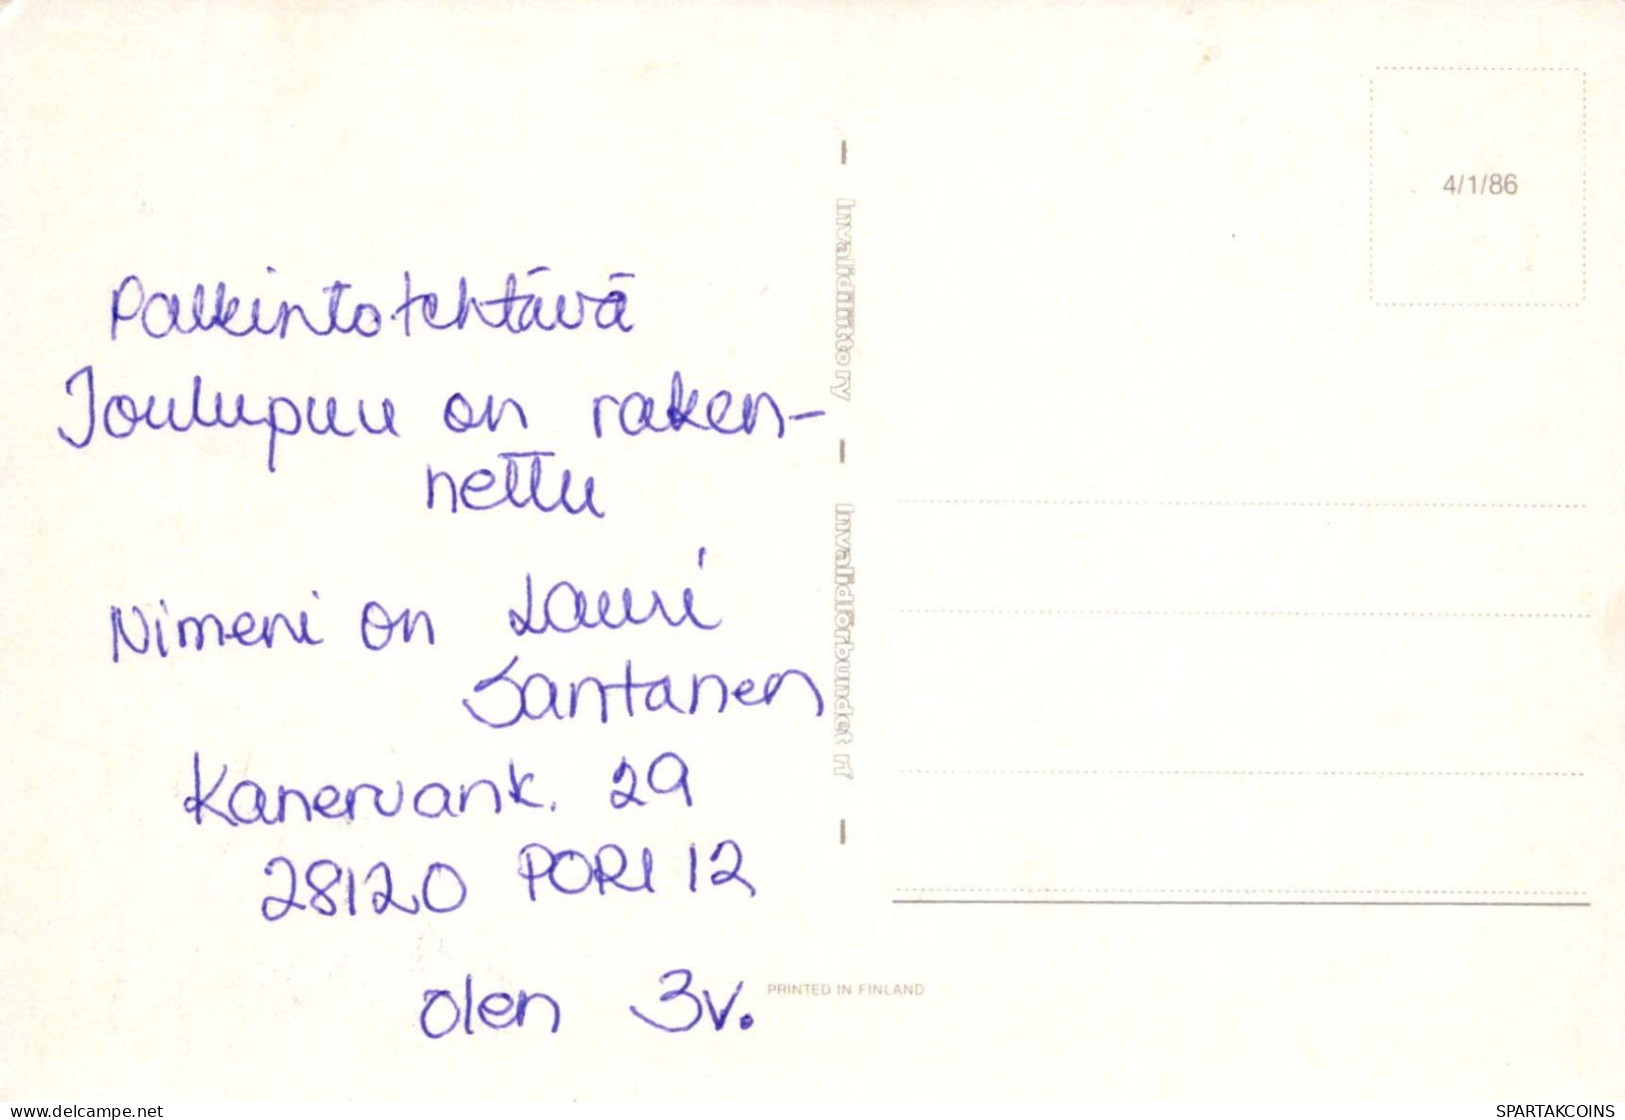 Palkintotehtävä
Joulupuu on raken-
nettu
Nimeni on Lauri
Santanen
Kanervank. 29
28120 PORI 12
olen 3v.
Invalidiliitto ry
Invalidförbundet rf
4/1/86
PRINTED IN FINLAND
www.delcampe.net
SPARTAKCOINS